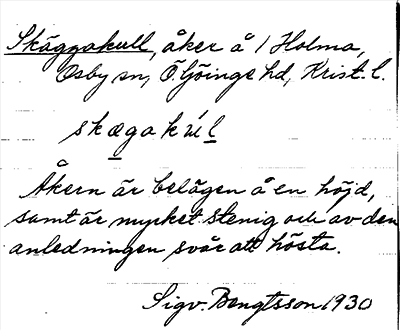 Skäggakull, åker å 1 Holma,
Osby sn, Ö. Göinge hd, Krist. l.
skægakúl
Åkern är belägen å en höjd,
samt är mycket stenig och av den
anledningen svår att hösta.
Sigv. Bengtsson 1930